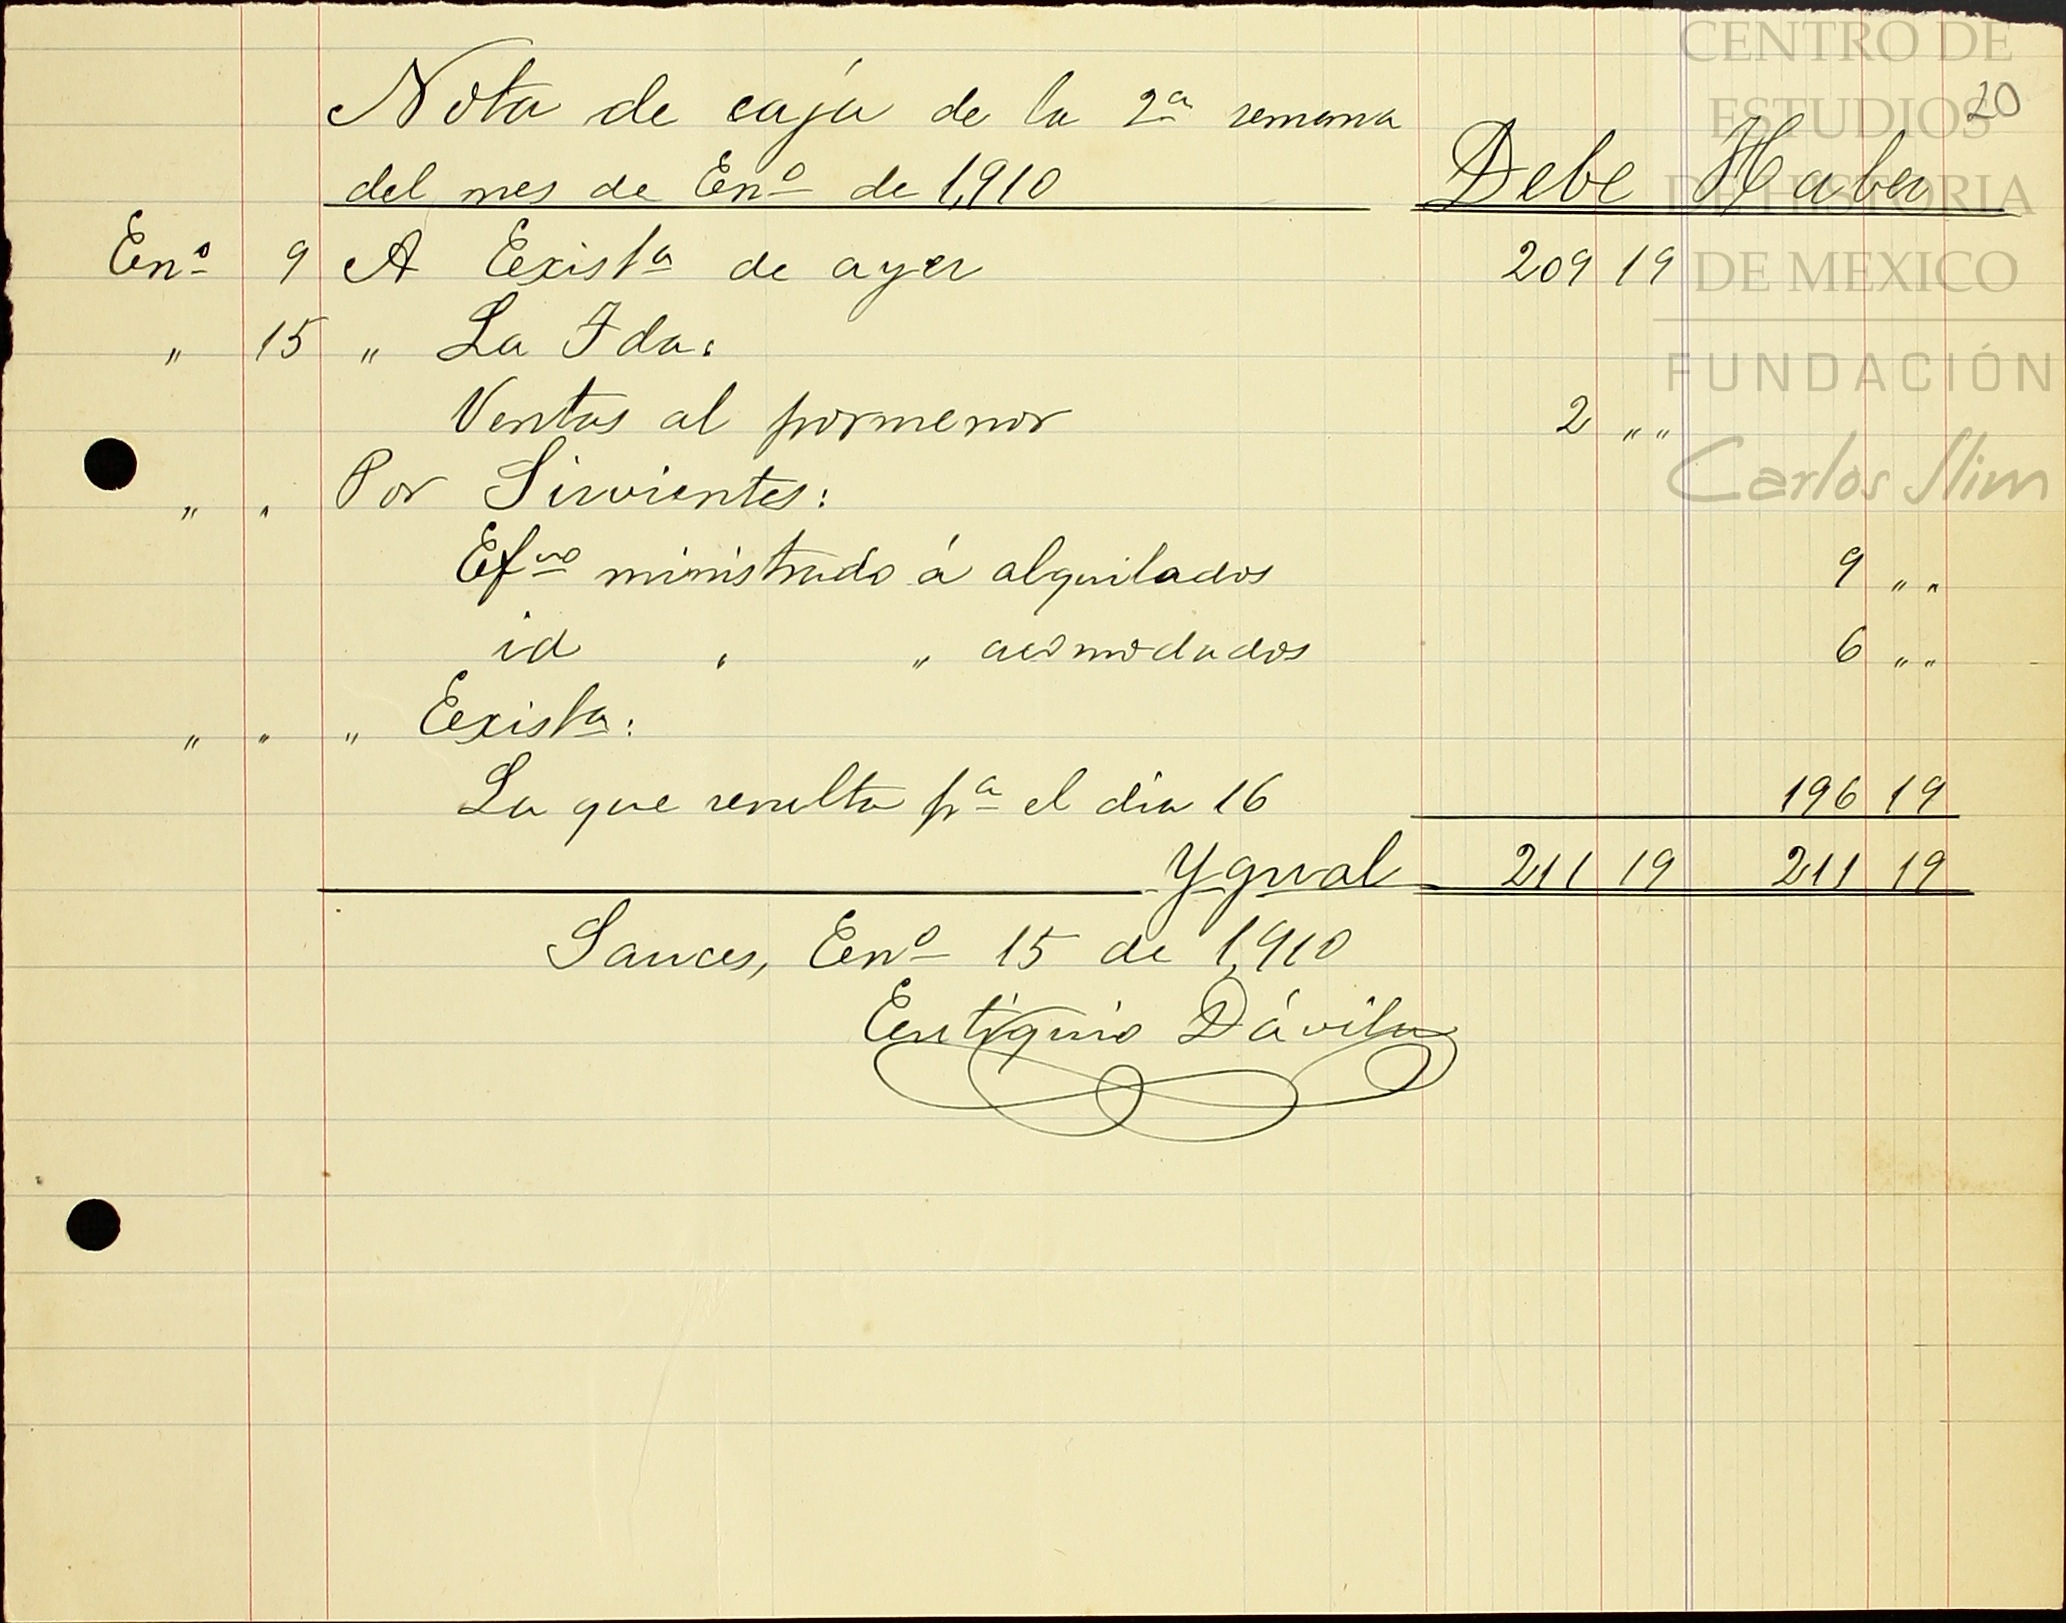 CENTRO DE
ESTUDIOS
DE HISTORIA
DE MEXICO
FUNDACIÓN
Carlos Slim
20
Nota de caja de la 2ª semana
del mes de Enº de 1,910 Debe Haber
Enº 9 A Existª de ayer 209 19
" 15 " La Ida:
Ventas al pormenor 2 " "
" " Por Sirvientes:
Efvo ministrado á alquilados 9 " "
id " " acomodados 6 " "
" " " Existª:
La que resulta pª el dia 16 196 19
Ygual 211 19 211 19
Sauces, Enº 15 de 1,910
Eutiquio Dávila